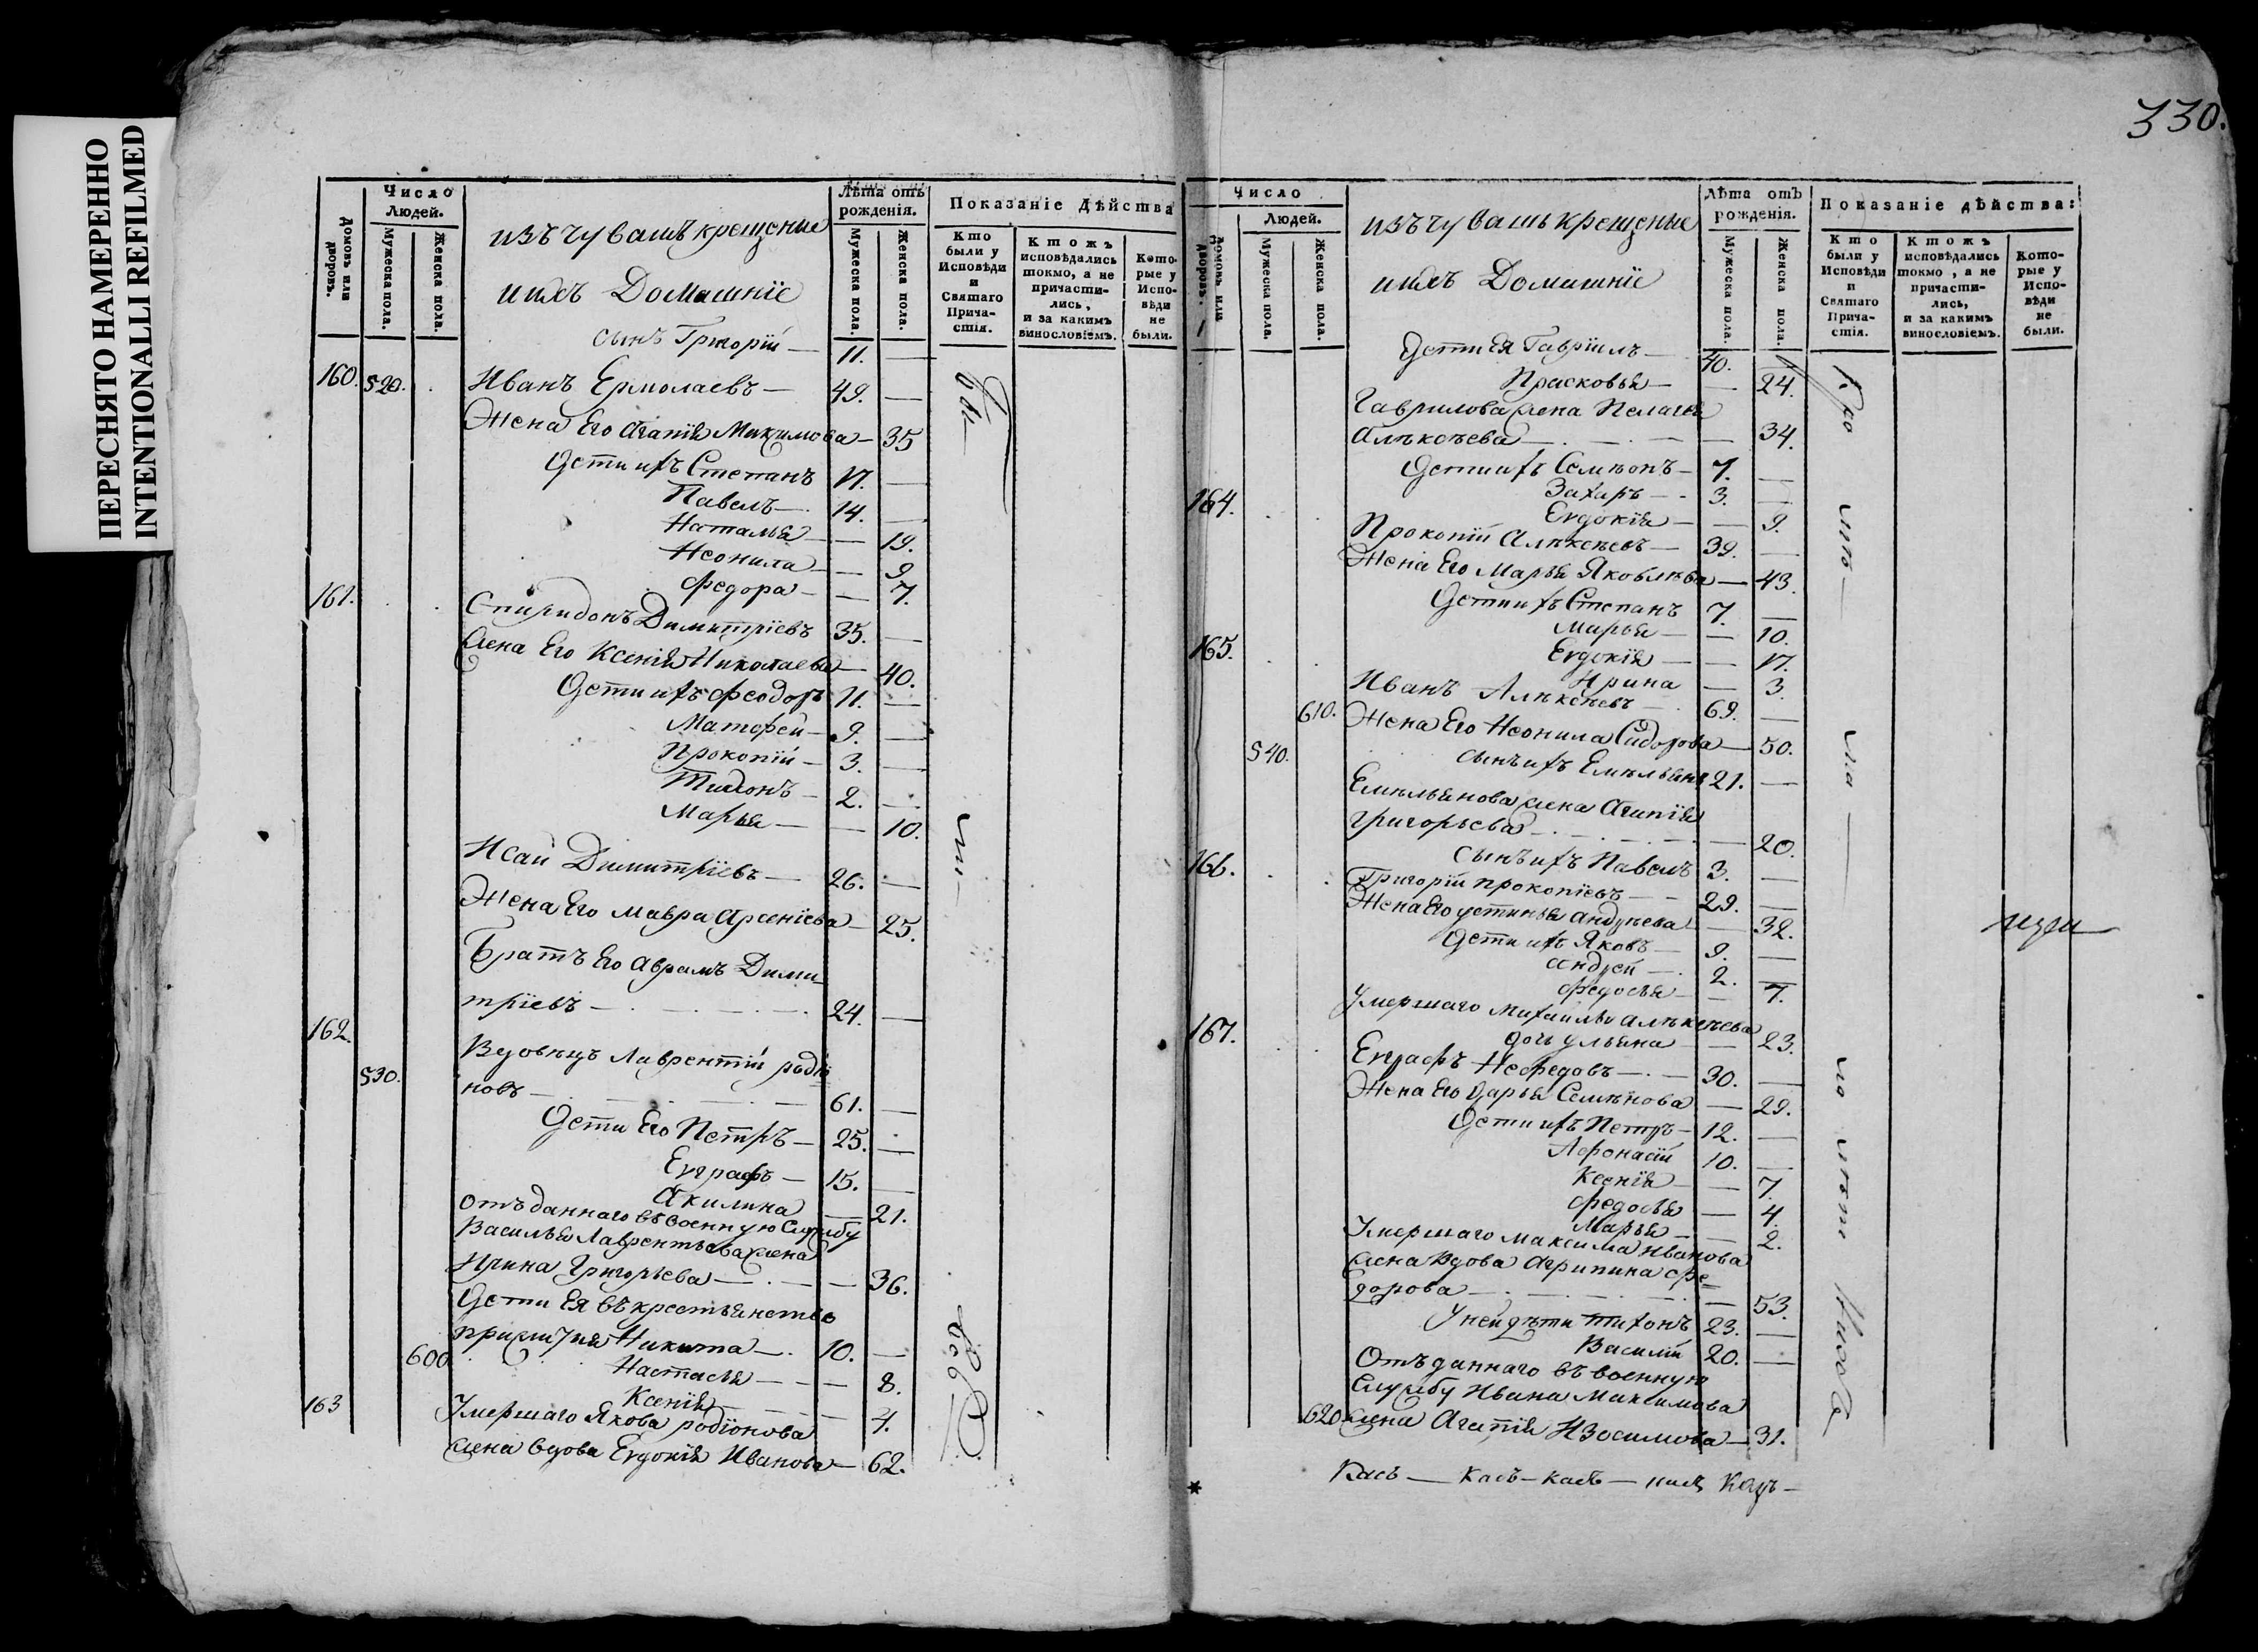 ПЕРЕСНЯТО НАМЕРЕННО
INTENTIONALLI REFILMED
Число
Людей.
Домовъ или дворовъ.
Мужеска пола.
Женска пола.
изъ чувашъ крещеные
и ихъ Домашніе
Лѣта отъ рожденія.
Мужеска пола.
Женска пола.
Показаніе Дѣйства
Кто были у Исповѣди и Святаго Причастія.
Ктожъ исповѣдались токмо, а не причастились, и за какимъ винословіемъ.
Которые у Исповѣди не были.
сынъ Григорій — 11. —
160. 520. Иванъ Ермолаевъ — 49. —
Жена Его Агапія Максимова — 35
Дети ихъ Степанъ 17. —
Павелъ — 14. —
Наталья — — 19.
Неонила — — 9
Федора — — 7.
161. Спиридонъ Димитріевъ 35. —
жена Его Ксенія Николаева — 40.
Дети ихъ Феодоръ 11. —
Матфей — 9. —
Прокопій — 3. —
Тихонъ — 2. —
Марья — — 10.
Исай Димитріевъ — 26. —
Жена Его Мавра Арсеніева — 25.
Братъ Его Аврамъ Дими
тріевъ — 24. —
162. Вдовецъ Лаврентій родіо
530. новъ — 61. —
Дети Его Петръ — 25. —
Евграфъ — 15. —
Акилина — 21.
отъданнаго въ военную Службу
Василья Лаврентьева жена
Ирина Григорьева — — 36.
Дети Ея въ крестьянстве
прижитыя Никита — 10. —
600. Настасья — — 8.
Ксенія — — 4.
163 Умершаго Якова родіонова
жена вдова Евдокія Иванова — 62.
330.
Число
Людей.
Домовъ или дворовъ.
Мужеска пола.
Женска пола.
изъ чувашъ крещеные
и ихъ Домашніе
Лѣта отъ рожденія.
Мужеска пола.
Женска пола.
Показаніе дѣйства:
Кто были у Исповѣди и Святаго Причастія.
Ктожъ исповѣдались токмо, а не причастились, и за какимъ винословіемъ.
Которые у Исповѣди не были.
Дети Ея Гавріилъ — 40. —
Прасковья — — 24.
Гаврилова жена Пелагея
Алѣксѣева — — 34.
Дети ихъ Семѣонъ — 7. —
Захаръ — 3. —
Евдокія — — 9.
164. Прокопій Алѣксѣевъ — 39. —
Жена Его Марья Яковлѣва — 43.
Дети ихъ Степанъ 7. —
Марья — — 10.
Евдокія — — 17.
Ирина — 3.
165. Иванъ Алѣксѣевъ — 69. —
610. Жена Его Неонила Сидорова — 50.
540. сынъ ихъ Емѣльянъ 21. —
Емѣльянова жена Агапія
григорьева — — 20.
сынъ ихъ Павелъ 3. —
166. Григорій прокопіевъ — 29. —
Жена Его устинья андрѣева — 32.
Дети ихъ Яковъ — 9. —
андрей — 2. —
федосья — — 7.
Умершаго Михаила алѣксѣева
дочь ульяна — — 23.
167. Евграфъ Нефедовъ — 30. —
Жена Его Дарья Семѣнова — 29.
Дети ихъ Петръ — 12. —
Афонасій 10. —
Ксенія — — 7.
федосья — 4.
Марья — — 2.
Умершаго Максима Иванова
жена вдова Агрипина фе
дорова — — 53.
У ней дѣти Тихонъ 23. —
Василій 20. —
Отъданнаго въ военную
службу Ивана Максимова
620 жена Агапія Изосимова — 31.